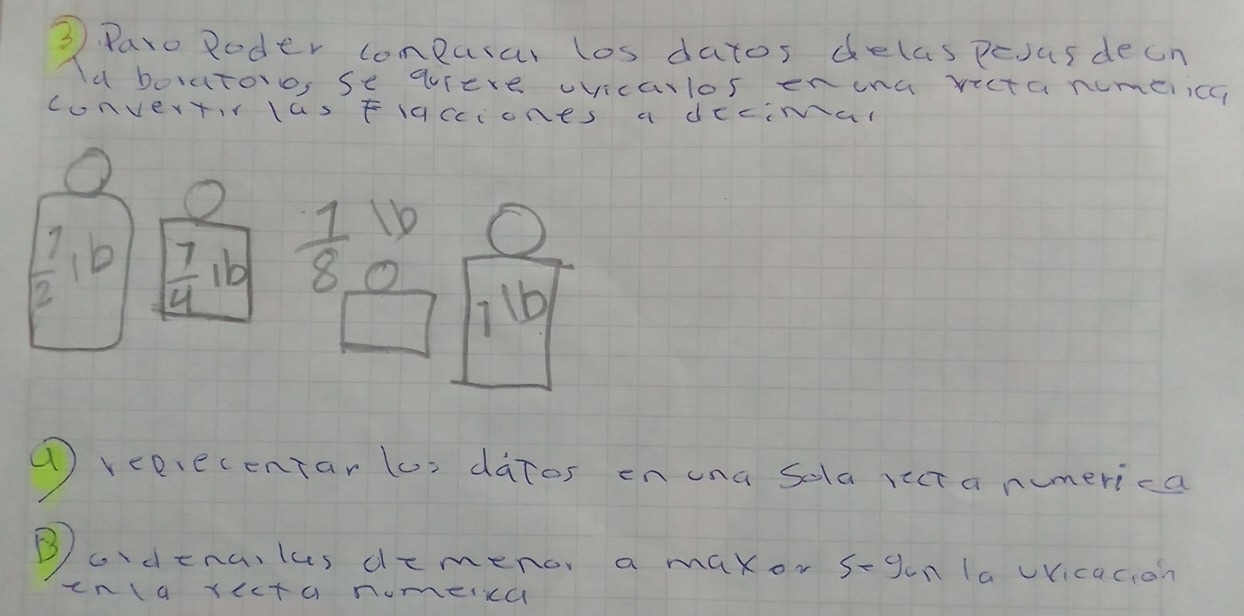 3) Para Poder comparar los datos de las pesas de un
laboratorio, se quiere uvicarlos en una recta numerica
convertir las Fracciones a decimal
1/2 lb
1/4 lb
1/8 lb
1 lb
a) reprecentar los dátos en una Sola recta numerica
B) ordenarlas de menor a maxor segun la uvicación
en la recta numerica